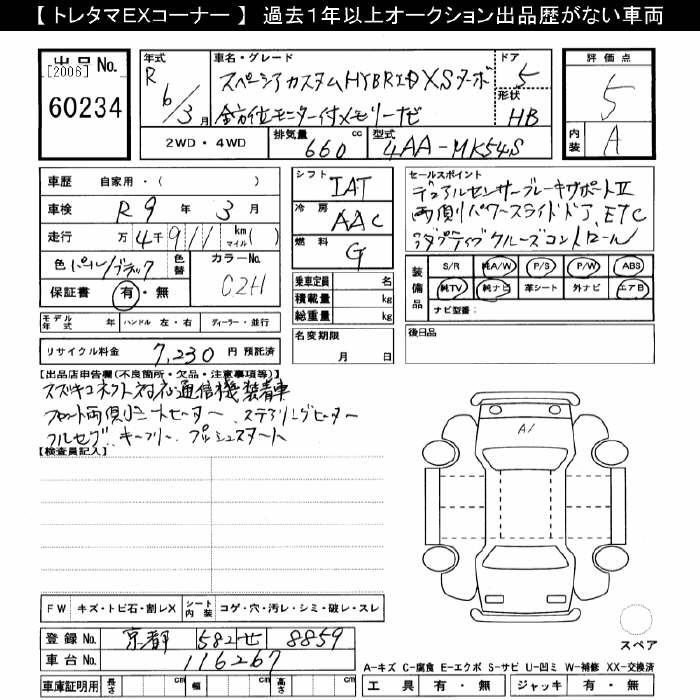 【 トレタマEXコーナー 】 過去１年以上オークション出品歴がない車両
出品 No.
[2006]
60234
年式
R
6/3 月
車名・グレード
スペーシアカスタムHYBRID XSターボ
全方位モニター付メモリーナビ
ドア
5
形状
HB
2WD・4WD
排気量
660 cc
型式
4AA-MK54S
評価点
5
内装
A
車歴 自家用・( )
車検 R 9 年 3 月
走行 万 4 千 9 1 1 km マイル ( )
色 パール/ブラック
色替
カラーNo.
CZH
保証書 有・無
モデル年式 年 ハンドル 左・右 ディーラー・並行
リサイクル料金 7,230 円 預託済
シフト IAT
冷房 AAC
燃料 G
乗車定員 名
積載量 kg
総重量 kg
名変期限
月 日
セールスポイント
デュアルセンサーブレーキサポートII
両側パワースライドドア、ETC
アダプティブクルーズコントロール
装備品
S/R 純A/W P/S P/W ABS
純TV 純ナビ 革シート 外ナビ エアB
ナビ型番:
後日品
【出品店申告欄(不良箇所・欠品・注意事項等)】
スズキコネクト対応通信機装着車
フロント両側シートヒーター、ステアリングヒーター
フルセグ、キーフリー、プッシュスタート
【検査員記入】
A1
FW キズ・トビ石・割レX
シート内装 コゲ・穴・汚レ・シミ・破レ・スレ
登録 No. 京都 582 せ 8859
車台 No. 116267
車庫証明用 長さ cm 幅 cm 高さ cm
スペア
A-キズ C-腐食 E-エクボ S-サビ U-凹ミ W-補修 XX-交換済
工具 有・無 ジャッキ 有・無